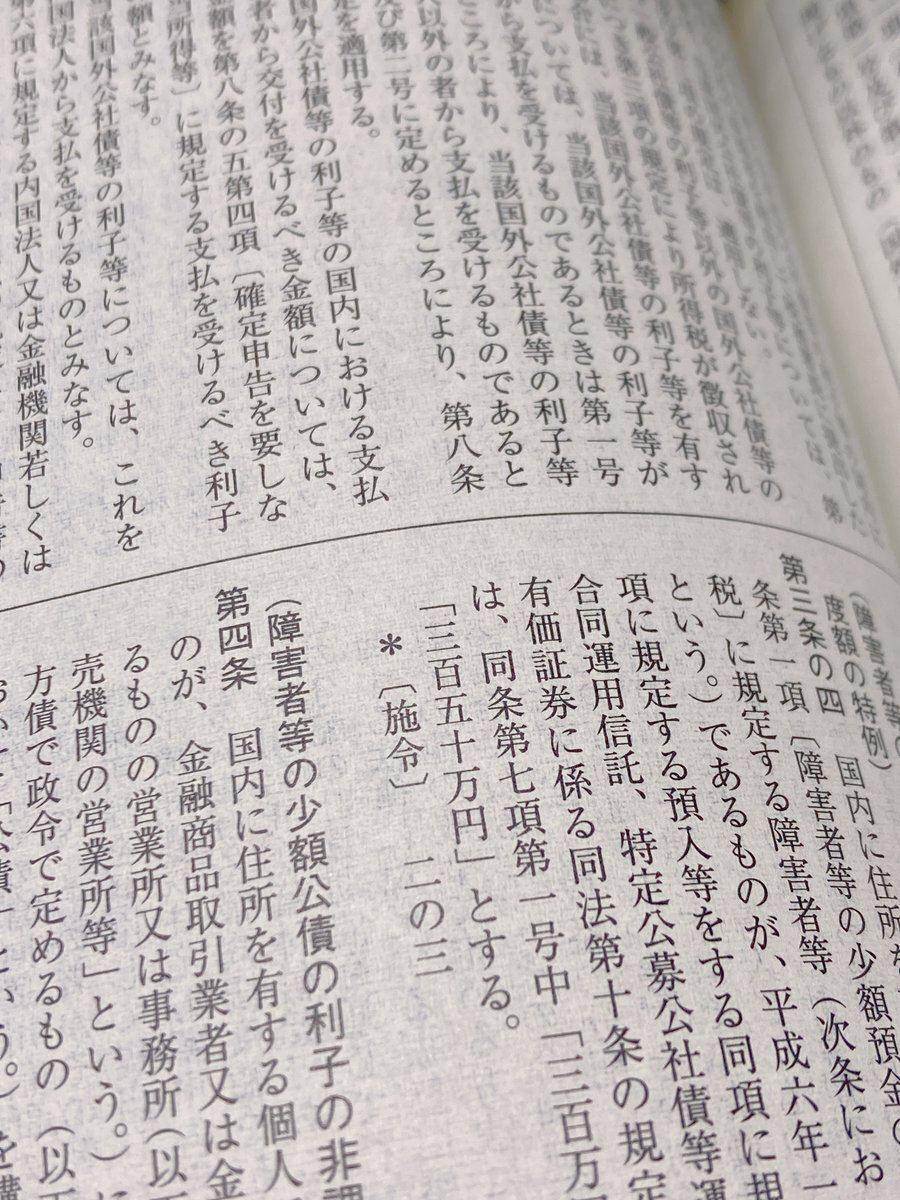 第
の利子等以外の国外公社債等の
つき第三項の規定により所得税が徴収され
合には、当該国外公社債等の利子等を有す
については、当該国外公社債等の利子等が
から支払を受けるものであるときは第一号
ところにより、当該国外公社債等の利子等
人以外の者から支払を受けるものであると
及び第二号に定めるところにより、第八条
定を適用する。
国外公社債等の利子等の国内における支払
者から交付を受けるべき金額については、
金額を第八条の五第四項〔確定申告を要しな
当所得等〕に規定する支払を受けるべき利子
額とみなす。
当該国外公社債等の利子等については、これを
国法人から支払を受けるものとみなす。
第六項に規定する内国法人又は金融機関若しくは
(障害者等の
度額の特例)
第三条の四 国内に住所を
条第一項〔障害者等の少額預金の
税〕に規定する障害者等(次条にお
という。)であるものが、平成六年一
項に規定する預入等をする同項に規
合同運用信託、特定公募公社債等運
有価証券に係る同法第十条の規定
は、同条第七項第一号中「三百万
「三百五十万円」とする。
*〔施令〕 二の三
(障害者等の少額公債の利子の非課
第四条 国内に住所を有する個人
のが、金融商品取引業者又は金
るものの営業所又は事務所(以
売機関の営業所等」という。)に
方債で政令で定めるもの(以下